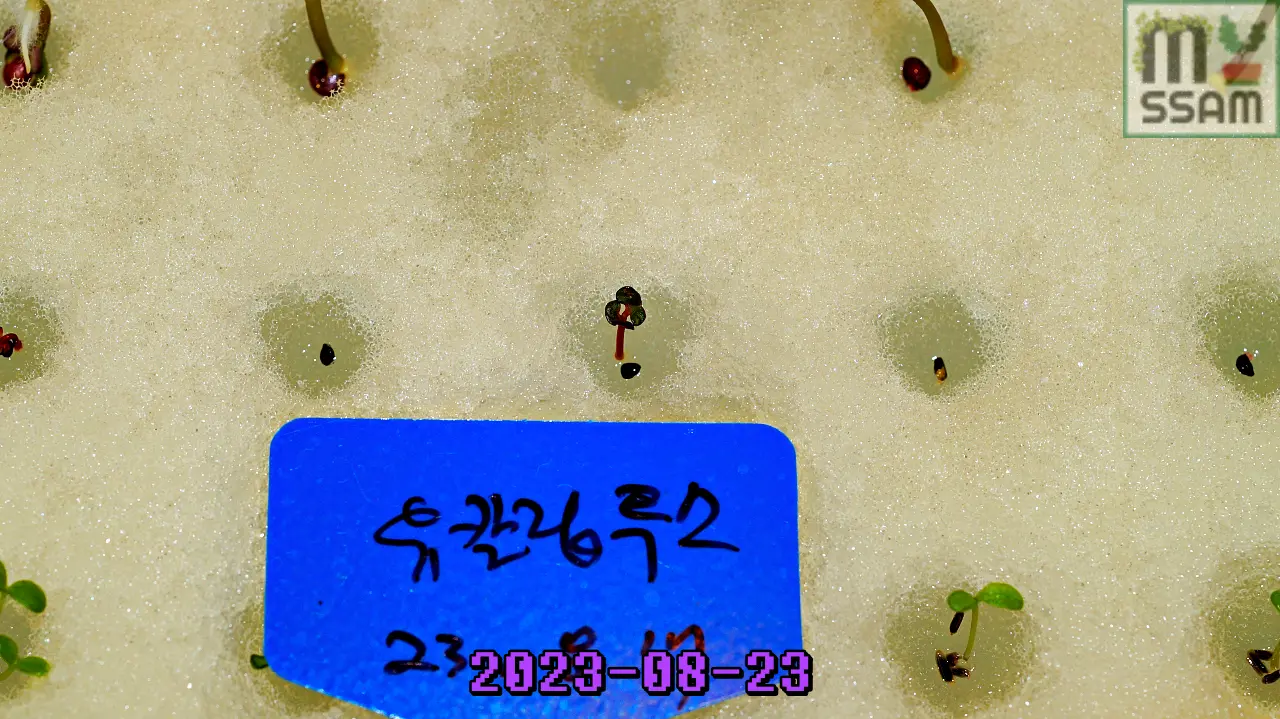 MY
SSAM
유칼립투스
23 8 17
2023-08-23